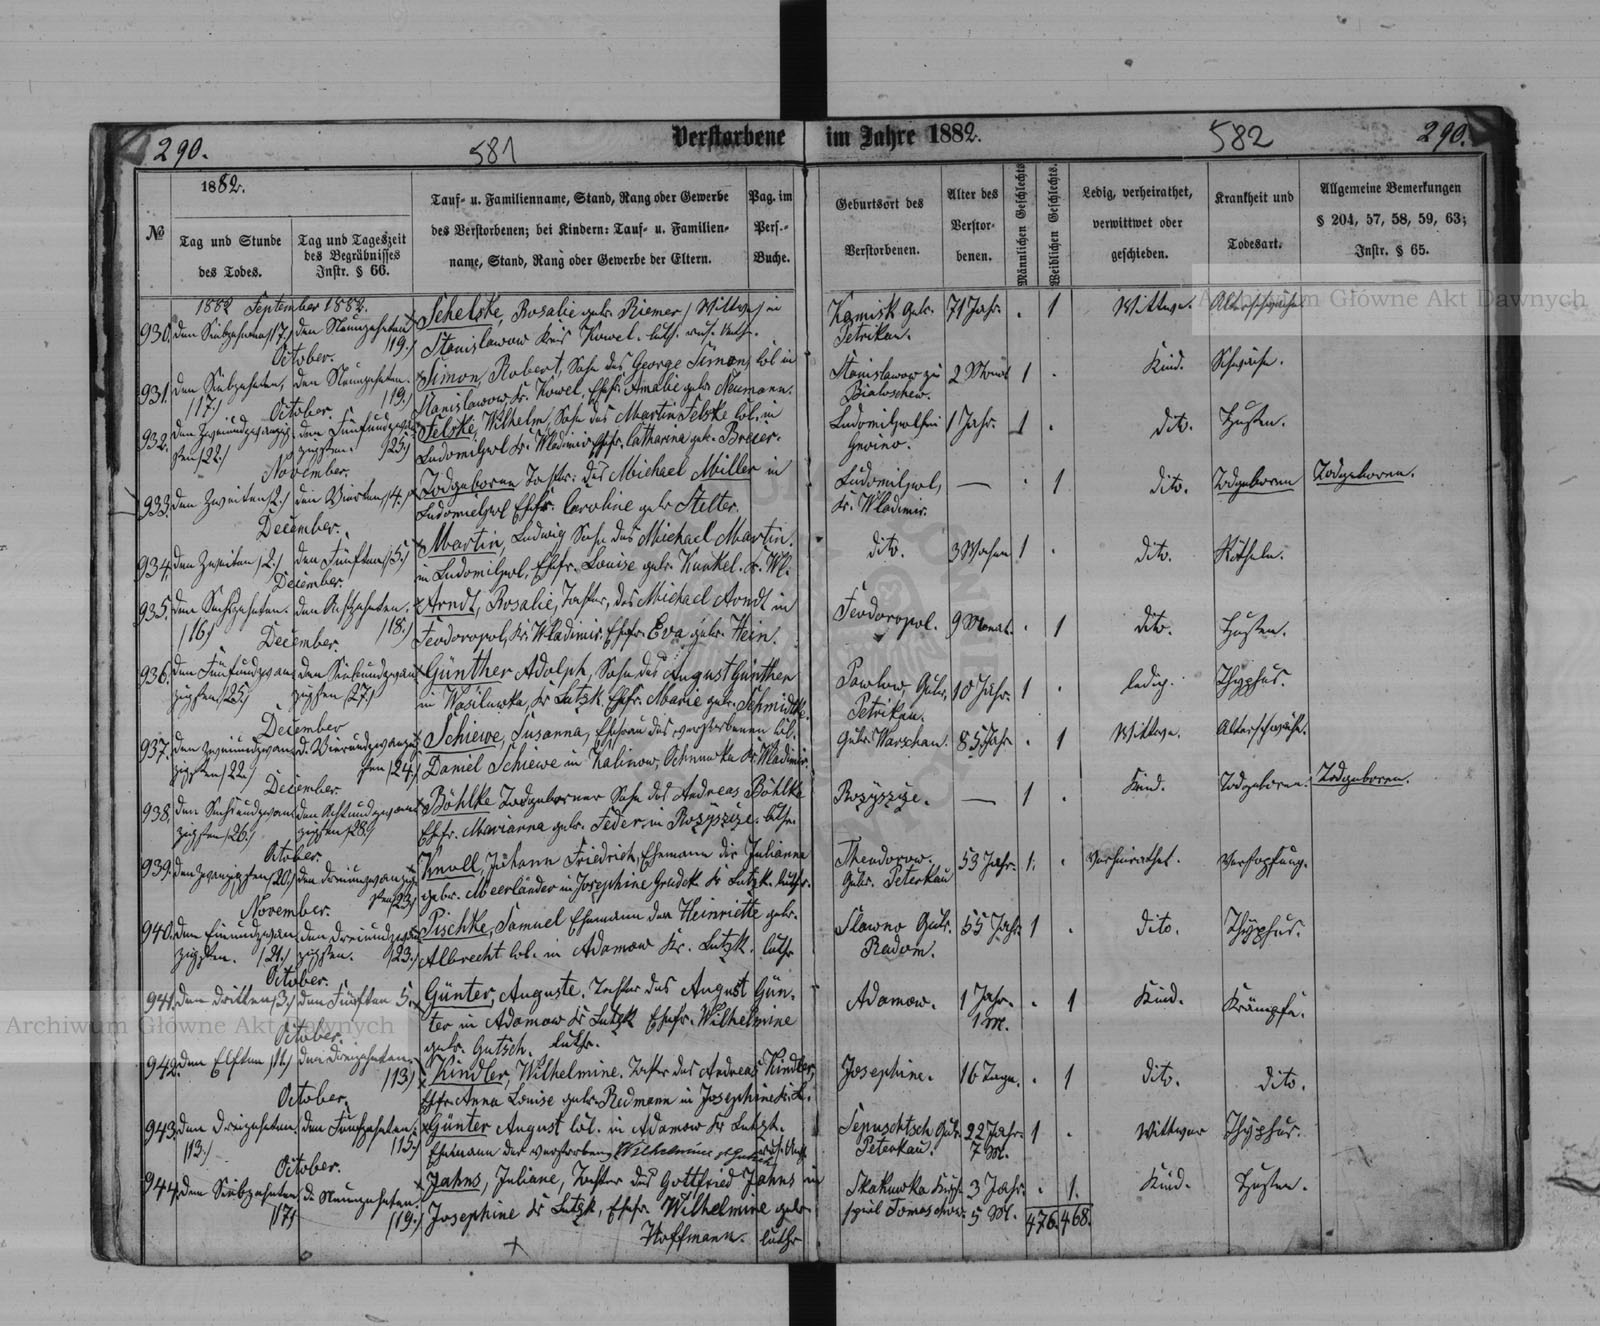 290.
581
Verstorbene im Jahre 1882.
582
290.
№
1882.
Tag und Stunde
des Todes.
Tag und Tageszeit
des Begräbnisses
Instr. § 66.
Tauf- u. Familienname, Stand, Rang oder Gewerbe
des Verstorbenen; bei Kindern: Tauf- u. Familien-
name, Stand, Rang oder Gewerbe der Eltern.
Pag. im
Pers.-
Buche.
Geburtsort des
Verstorbenen.
Alter des
Verstor-
benen.
Männlichen Geschlechts
Weiblichen Geschlechts.
Ledig, verheirathet,
verwittwet oder
geschieden.
Krankheit und
Todesart.
Allgemeine Bemerkungen
§ 204, 57, 58, 59, 63;
Instr. § 65.
1882 September 1882.
930. den Siebzehnten /17./ den Neunzehnten /19./
Schelske, Rosalie geb. Riemer, Wittwe in
Stanislawow Kreis Kowel. luth.
Kamisk Gub. Petrikau.
71 Jahr. . 1 Wittwe. Altersschwäche.
October.
931. den Siebzehnten, /17./ den Neunzehnten. /19./
Simon, Robert, Sohn des George Simon, Col. in
Stanislawow, Kr. Kowel, Ehefr. Amalie geb. Neumann.
Stanislawow zu
2 Monat 1 . Kind. Schwäche.
October.
932. den Zweiundzwanzig-
sten /22./ den Fünfundzwan-
zigsten. /25./
Felske, Wilhelm, Sohn des Martin Felske Col. in
Ludomilpol Kr. Wladimir Ehefr. Catharina geb. Breier.
Ludomilpol bei
1 Jahr. 1 . dito. Husten.
November.
933. den Zweiten /2./ den Vierten /4./
Todgeborne Tochter des Michael Miller in
Ludomilpol Ehefr. Caroline geb. Stelter.
Ludomilpol,
Kr. Wladimir.
— . 1 dito. Todgeboren Todgeboren.
December.
934. den Zweiten /2./ den Fünften /5./
Martin, Ludwig Sohn des Michael Martin.
in Ludomilpol, Ehefr. Louise geb. Kunkel. Kr. Wl.
dito. 3 Wochen 1 . dito. Rötheln.
December.
935. den Sechszehnten. /16/ den Achtzehnten. /18./
Arndt, Rosalie, Tochter, des Michael Arndt in
Feodoropol, Kr. Wladimir. Ehefr. Eva geb. Hein.
Feodoropol. 9 Monat. . 1 dito. Husten.
December.
936. den Fünfundzwan
zigsten /25./ den Siebundzwan
zigsten /27./
Günther Adolph, Sohn des August Günther
in Wasilowka, Kr Lutzk. Ehefr. Marie geb. Schmidtke.
Pawlow, Gub.
Petrikau.
10 Jahr. 1 . ledig. Thyphus.
December
937. den Zweiundzwan
zigsten /22./ d. Vierundzwanzig
sten /24./
Schiewe, Susanna, Ehefrau des verstorbenen Col.
Daniel Schiewe in Kalinow, Kr. Wladimir.
Gub. Warschau. 85 Jahr . 1 Wittwe. Altersschwäche.
December
938. den Sechsundzwan
zigsten /26./ den Achtundzwan
zigsten /28/
Böhlke Todgeborner Sohn des Andreas Böhlke
Ehefr. Marianna geb. Feder in Rozyszcze. luth.
Rozyszcze. — 1 . Kind. Todgeboren. Todgeboren.
October.
939. den Zwanzigsten /20./ den Dreiundzwanzig
sten /23/
Knoll, Johann Friedrich, Ehemann der Julianna
gebr. Meerländer in Josephine Grudek Kr Lutzk. luthr.
Theodorow.
Gubr. Peterkau
53 Jahr. 1. . Verheirathet. Verstopfung.
November.
940. den Einundzwan
zigsten. /21./ den dreiundzwan
zigsten. /23./
Pischke, Samuel Ehemann der Heinriette gebr.
Albrecht Col. in Adamow Kr. Lutzk. luthr
Slawno Gub.
Radom.
55 Jahr. 1 . dito. Thyphus.
October.
941. den dritten /3./ den Fünften 5.
Günter, Auguste. Tochter des August Gün-
ter in Adamow Kr Lutzk Ehefr. Wilhelmine
gebr. Gutsch. luthr.
Adamow. 1 Jahr. 1 M. . 1 Kind. Krämpfe.
October.
942. den Elften /11./ den Dreizehnten. /13./
Kindler, Wilhelmine. Tochter des Andreas Kindler,
Ehefr. Anna Louise gebr. Redmann in Josephine Kr. L.
Josephine. 16 Tage. . 1 dito. dito.
October.
943. den Dreizehnten. /13./ den Fünfzehnten. /15./
Günter August Col. in Adamow Kr Lutzk.
Ehemann der verstorbenen Wilhelmine
Gub.
Peterkau.
22 Jahr. 7 M. 1 . Wittwer Thyphus.
October.
944. den Siebzehnten /17/ d. Neunzehnten. /19./
Jahns, Juliane, Tochter des Gottfried Jahns in
Josephine Kr Lutzk, Ehefr. Wilhelmine gebr.
Hoffmann. luthr
Skakuwka
3 Jahr. 5 M. . 1. Kind. Husten.
476. 468.
Archiwum Główne Akt Dawnych
Archiwum Główne Akt Dawnych